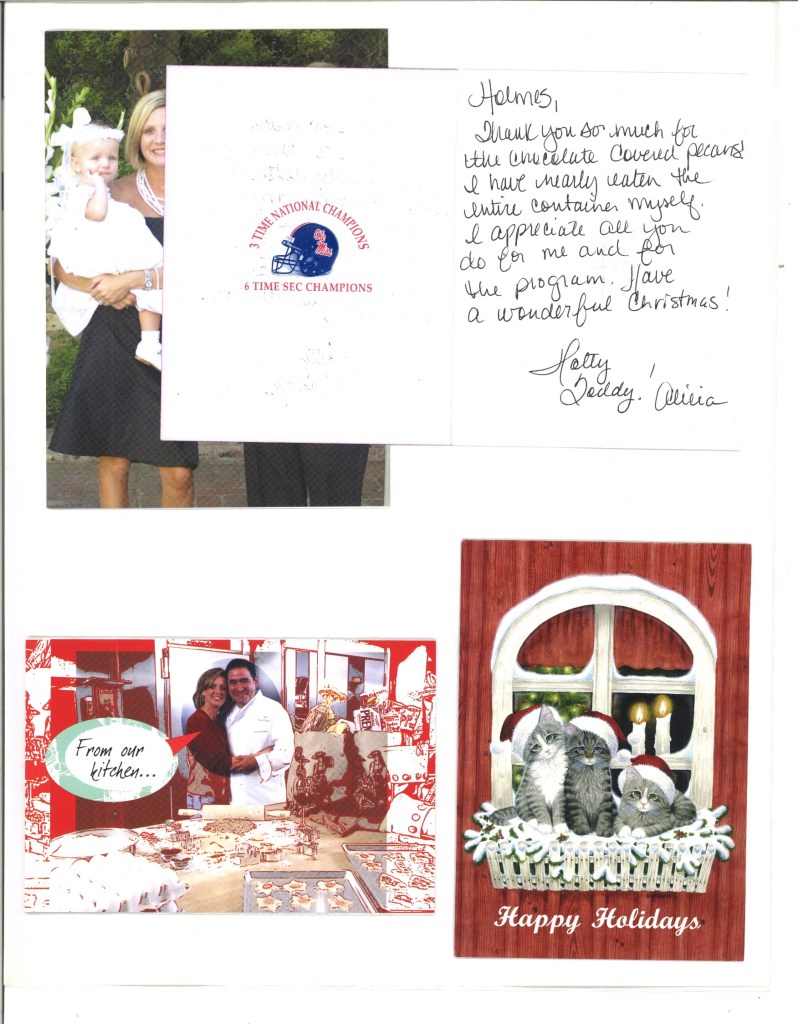 3 TIME NATIONAL CHAMPIONS
Ole Miss
6 TIME SEC CHAMPIONS
Holmes,
Thank you so much for
the chocolate covered pecans!
I have nearly eaten the
entire container myself.
I appreciate all you
do for me and for
the program. Have
a wonderful Christmas!
Hotty
Toddy! Alicia
From our
kitchen...
Happy Holidays